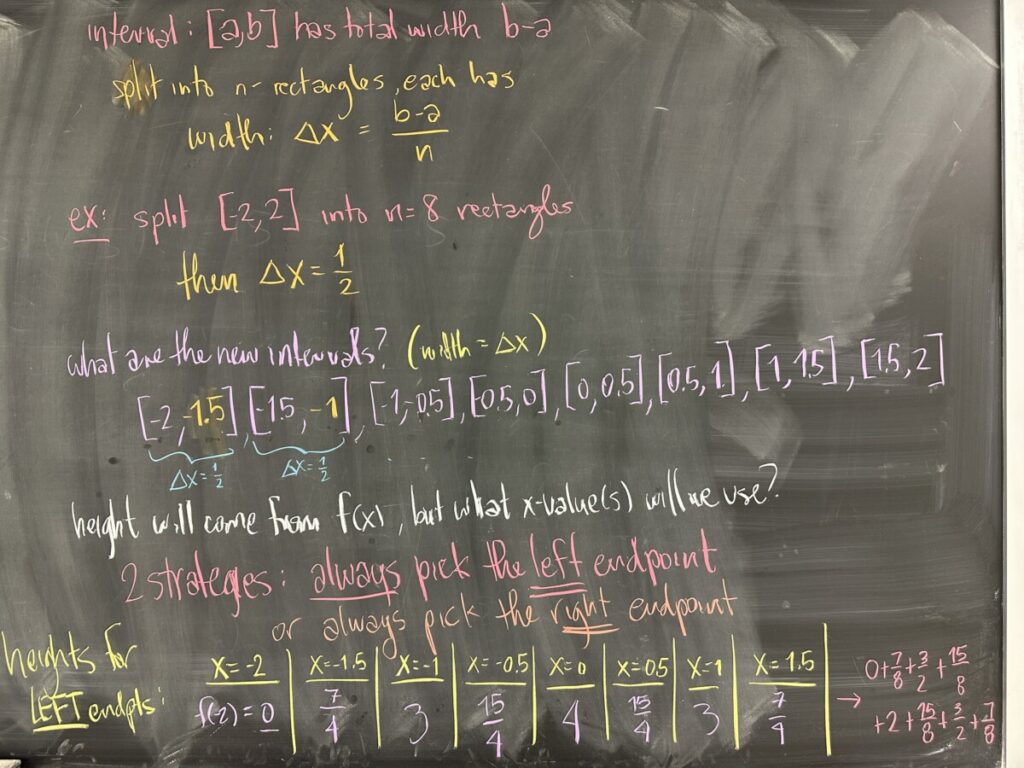 interval: [a,b] has total width b-a
split into n-rectangles, each has
width: Δx = (b-a)/n
ex: split [-2,2] into n=8 rectangles
then Δx = 1/2
what are the new intervals? (width = Δx)
[-2,-1.5], [-1.5,-1], [-1,-0.5], [-0.5,0], [0,0.5], [0.5,1], [1,1.5], [1.5,2]
Δx=1/2 Δx=1/2 . . .
height will come from f(x), but what x-value(s) will we use?
2 strategies: always pick the left endpoint
or always pick the right endpoint
heights for
LEFT endpts:
x=-2 | x=-1.5 | x=-1 | x=-0.5 | x=0 | x=0.5 | x=1 | x=1.5
f(-2)=0 | 7/4 | 3 | 15/4 | 4 | 15/4 | 3 | 7/4
→ 0+7/8+3/2+15/8
+2+15/8+3/2+7/8